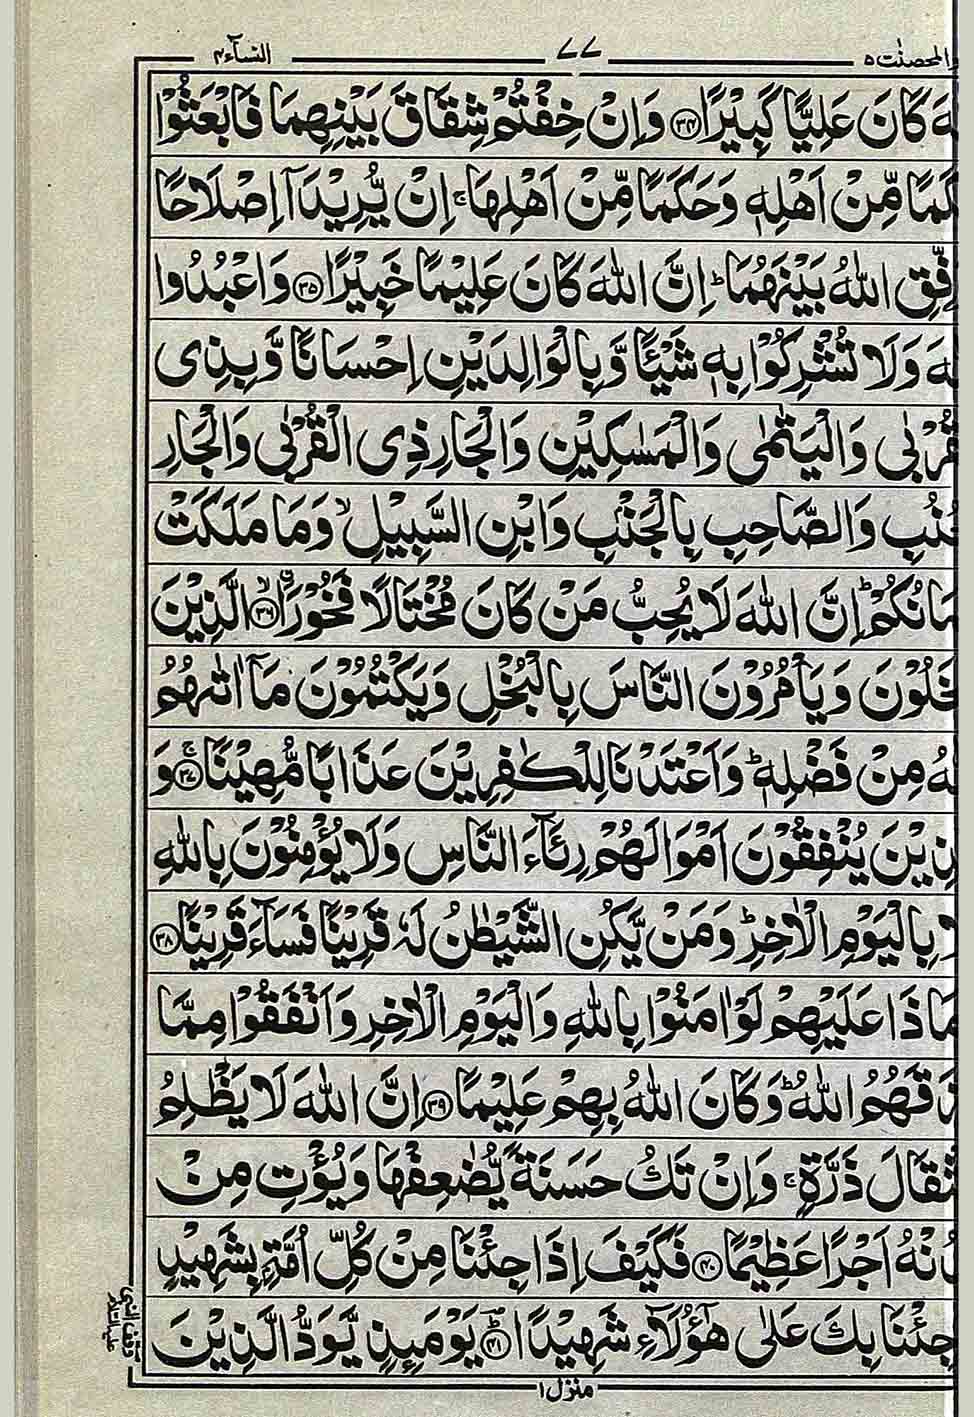 المحصنت ۵ ۷۷ النسآء ۴
هَ كَانَ عَلِيًّا كَبِيْرًا ﴿۳۴﴾ وَاِنْ خِفْتُمْ شِقَاقَ بَيْنِهِمَا فَابْعَثُوْا
كَمًا مِّنْ اَهْلِهٖ وَحَكَمًا مِّنْ اَهْلِهَا ۚ اِنْ يُّرِيْدَآ اِصْلَاحًا
فِّقِ اللّٰهُ بَيْنَهُمَا ؕ اِنَّ اللّٰهَ كَانَ عَلِيْمًا خَبِيْرًا ﴿۳۵﴾ وَاعْبُدُوا
هَ وَلَا تُشْرِكُوْا بِهٖ شَيْئًا وَّبِالْوَالِدَيْنِ اِحْسَانًا وَّبِذِى
قُرْبٰى وَالْيَتٰمٰى وَالْمَسٰكِيْنِ وَالْجَارِ ذِى الْقُرْبٰى وَالْجَارِ
جُنُبِ وَالصَّاحِبِ بِالْجَنْۢبِ وَابْنِ السَّبِيْلِ ۙ وَمَا مَلَكَتْ
مَانُكُمْ ؕ اِنَّ اللّٰهَ لَا يُحِبُّ مَنْ كَانَ مُخْتَالًا فَخُوْرَا ۙ﴿۳۶﴾ الَّذِيْنَ
خَلُوْنَ وَيَاْمُرُوْنَ النَّاسَ بِالْبُخْلِ وَيَكْتُمُوْنَ مَآ اٰتٰهُمُ
هُ مِنْ فَضْلِهٖ ؕ وَاَعْتَدْنَا لِلْكٰفِرِيْنَ عَذَابًا مُّهِيْنًا ۚ﴿۳۷﴾ وَ
ذِيْنَ يُنْفِقُوْنَ اَمْوَالَهُمْ رِئَآءَ النَّاسِ وَلَا يُؤْمِنُوْنَ بِاللّٰهِ
لَا بِالْيَوْمِ الْاٰخِرِ ؕ وَمَنْ يَّكُنِ الشَّيْطٰنُ لَهٗ قَرِيْنًا فَسَآءَ قَرِيْنًا ﴿۳۸﴾
مَاذَا عَلَيْهِمْ لَوْ اٰمَنُوْا بِاللّٰهِ وَالْيَوْمِ الْاٰخِرِ وَاَنْفَقُوْا مِمَّا
زَقَهُمُ اللّٰهُ ؕ وَكَانَ اللّٰهُ بِهِمْ عَلِيْمًا ﴿۳۹﴾ اِنَّ اللّٰهَ لَا يَظْلِمُ
ثْقَالَ ذَرَّةٍ ۚ وَاِنْ تَكُ حَسَنَةً يُّضٰعِفْهَا وَيُؤْتِ مِنْ
دُنْهُ اَجْرًا عَظِيْمًا ﴿۴۰﴾ فَكَيْفَ اِذَا جِئْنَا مِنْ كُلِّ اُمَّةٍۭ بِشَهِيْدٍ
جِئْنَا بِكَ عَلٰى هٰٓؤُلَآءِ شَهِيْدًا ﴿۴۱﴾ يَوْمَئِذٍ يَّوَدُّ الَّذِيْنَ
منزل ۱